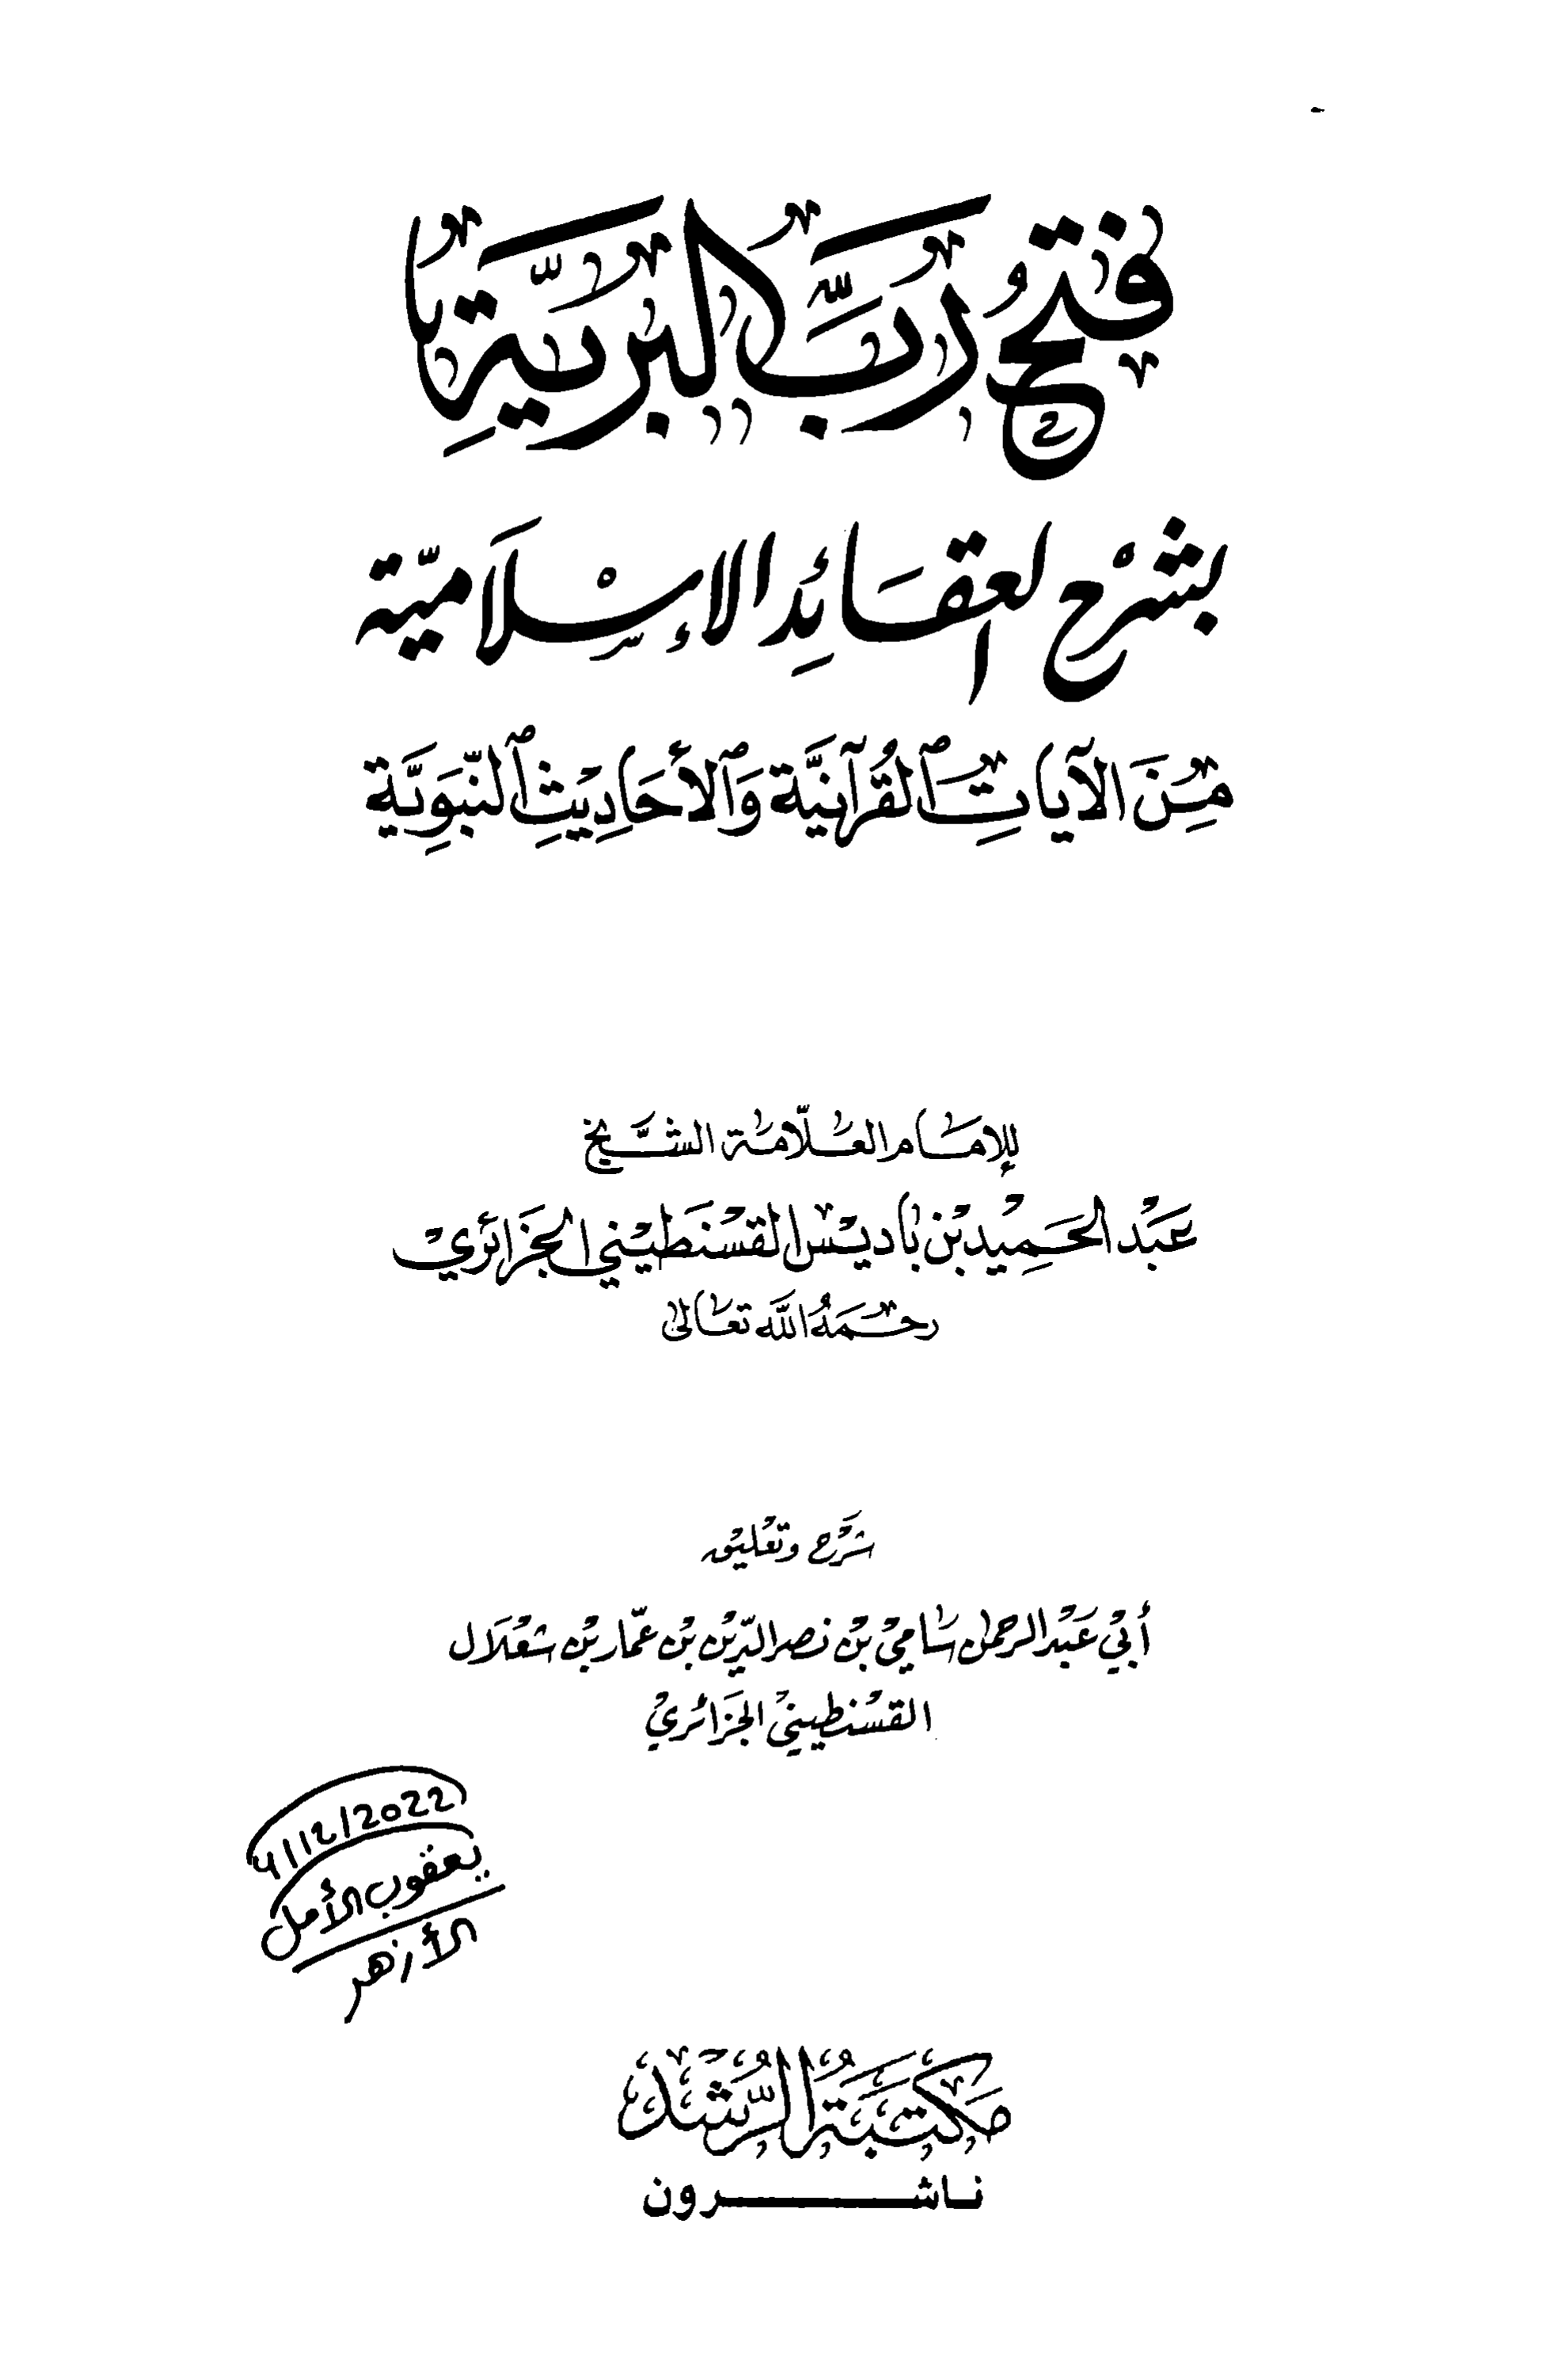 فتح رب البرية
بشرح العقائد الإسلامية
من الآيات القرآنية والأحاديث النبوية
للإمام العلامة الشيخ
عبد الحميد بن باديس القسنطيني الجزائري
رحمه الله تعالى
شرح وتعليق
أبي عبد الرحمن سامي بن نصر الدين بن عمار بن شعلال
القسنطيني الجزائري
2022
يعقوب الأمل
الأزهر
مكتبة الرشد
ناشرون